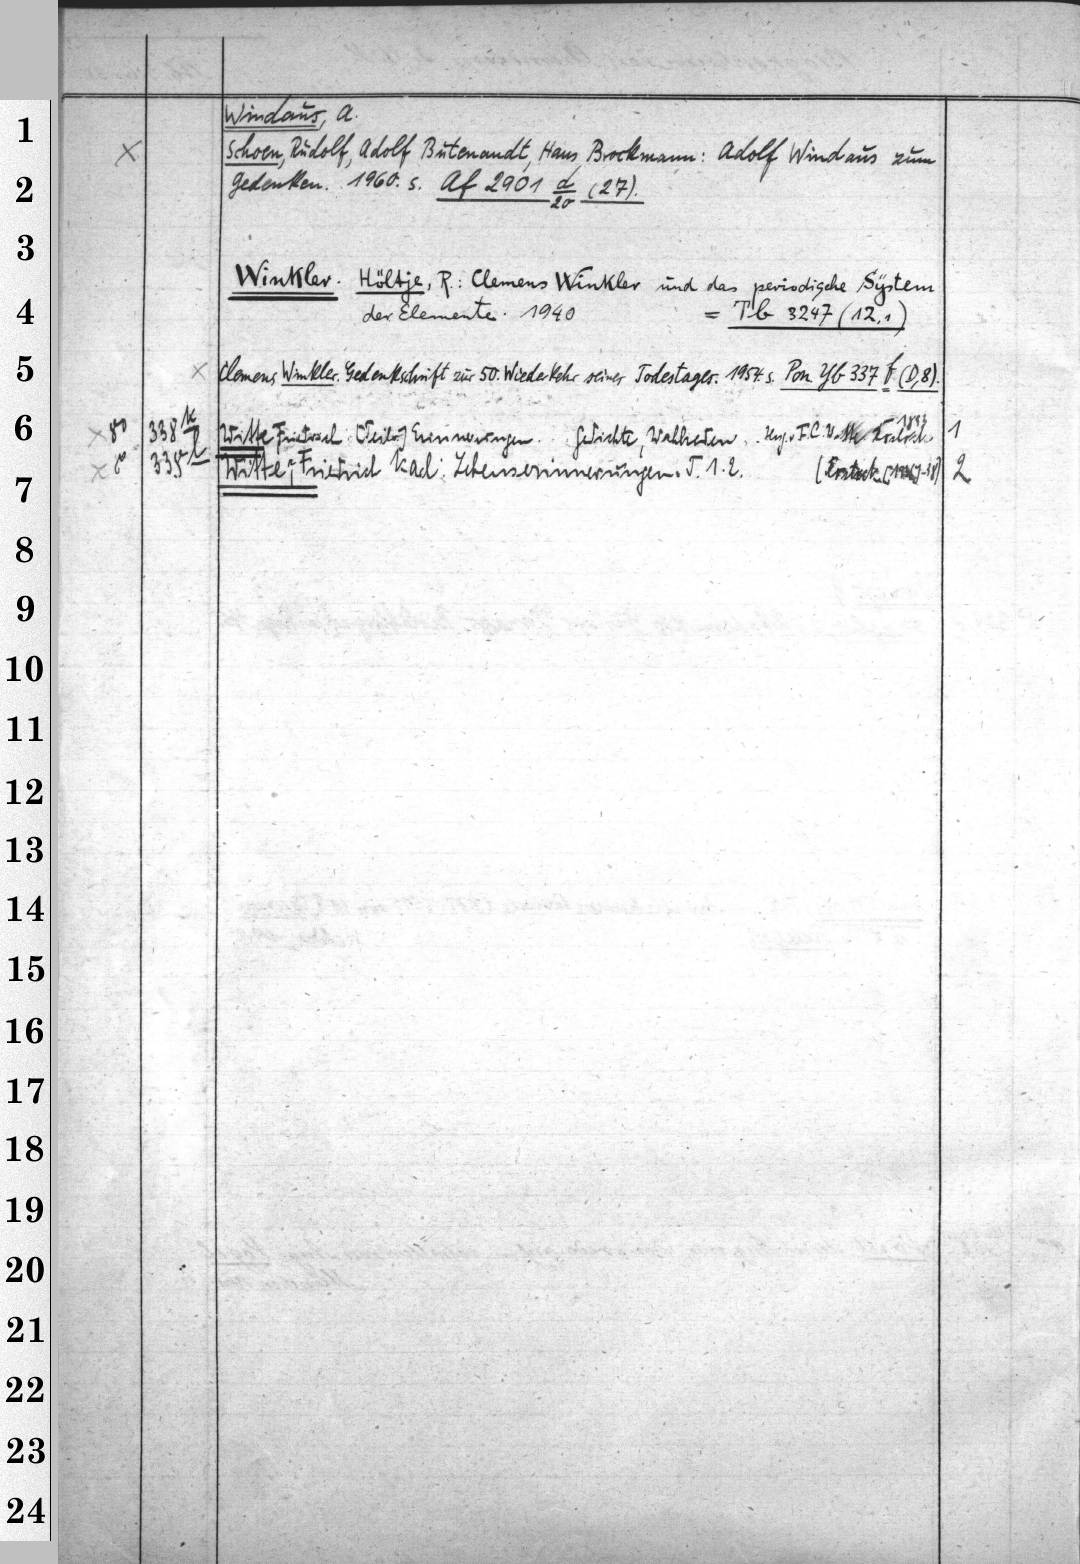 1
Windaus, A.
× Schoen, Rudolf, Adolf Butenandt, Hans Brockmann: Adolf Windaus zum
2
Gedenken. 1960. s. Af 2901 α/20 (27).
3
Winkler. Höltje, R.: Clemens Winkler und das periodische System
4
der Elemente. 1940 = Tb 3247 (12,1)
5
× Clemens Winkler. Gedenkschrift zur 50. Wiederkehr seines Todestages. 1954 s. Pon Yb 337 f (D,8).
6
× 8° 338 k Witte Friedrich: Erinnerungen. Gedichte, Wahlreden. Hrsg. v. F.C. Witte Rostock 1893 1
× 8° 338 l Witte, Friedrich Karl: Lebenserinnerungen. T. 1.2. (Rostock 2
7
8
9
10
11
12
13
14
15
16
17
18
19
20
21
22
23
24